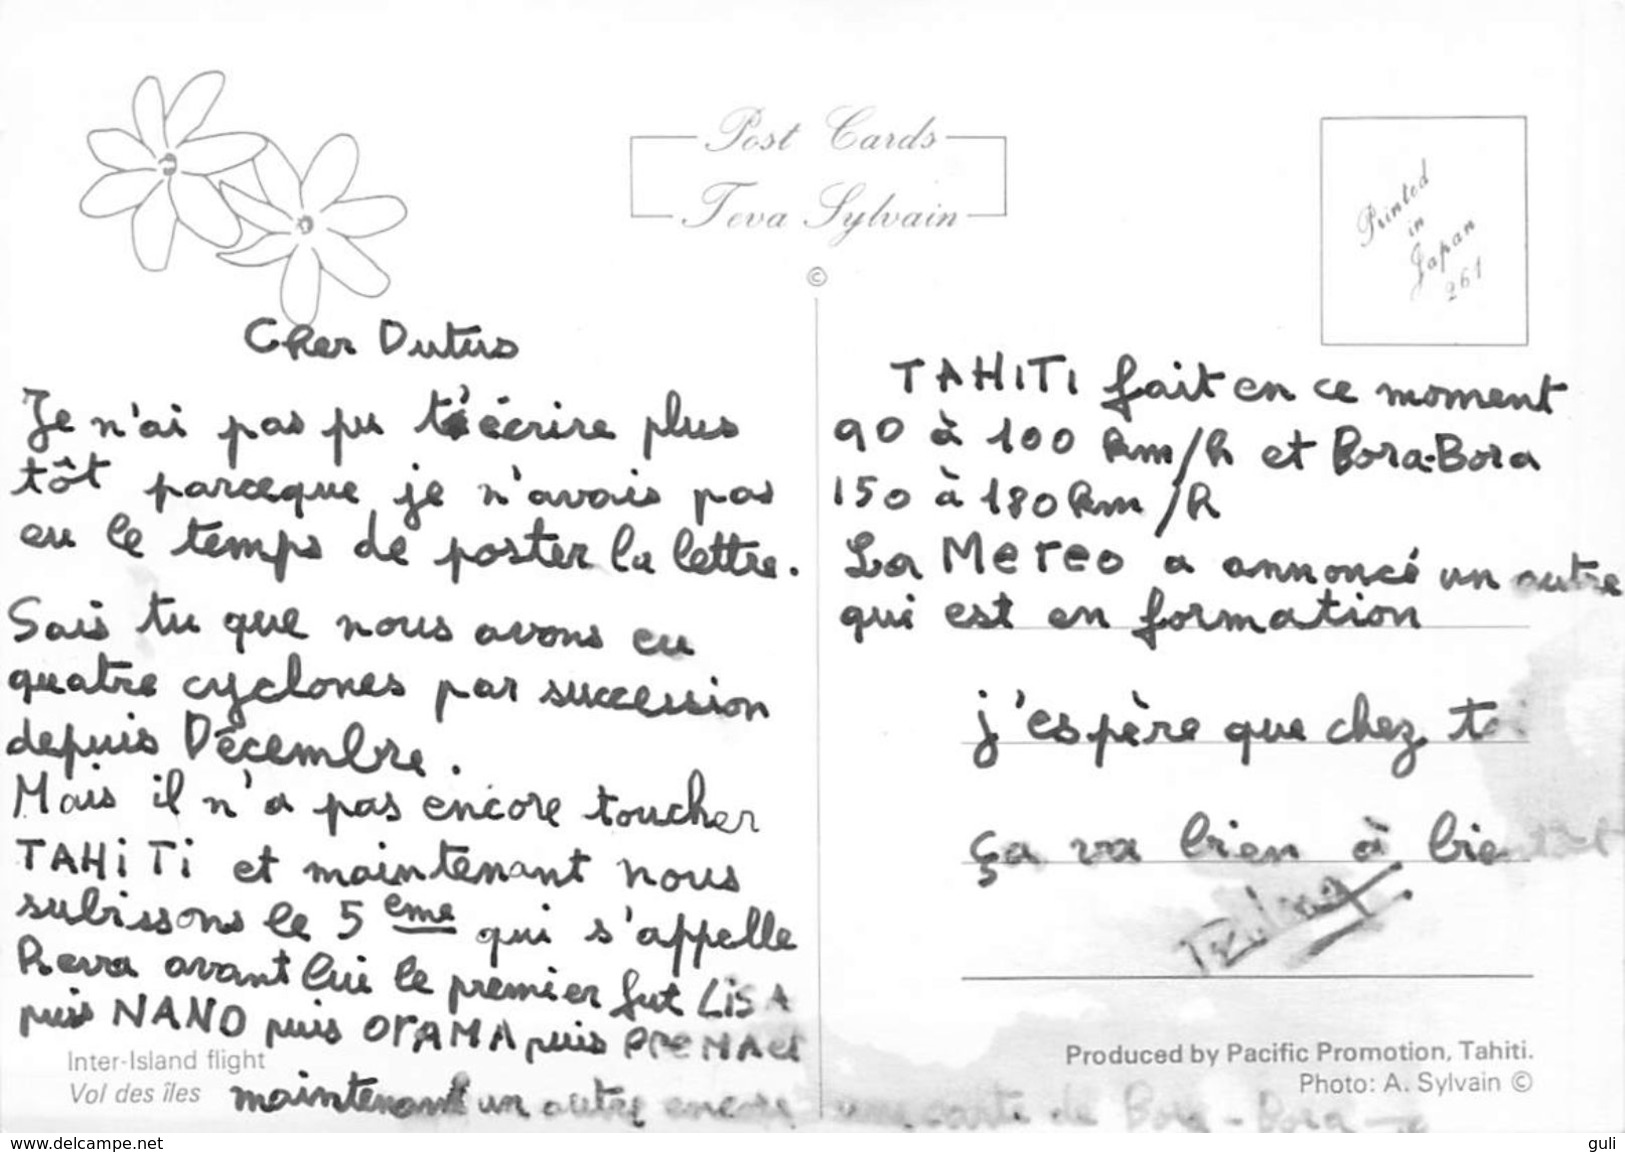 Post Cards
Teva Sylvain
©
Printed
in
Japan
261
Cher Dutus
Je n'ai pas pu t'écrire plus
tôt parceque je n'avais pas
eu le temps de poster la lettre.
Sais tu que nous avons eu
quatre cyclones par succession
depuis Décembre.
Mais il n'a pas encore toucher
TAHiTi et maintenant nous
subissons le 5 eme qui s'appelle
Reva avant lui le premier fut LiSA
puis NANO puis ORAMA puis et
maintenant un autre encore une carte de Bora-Bora
Inter-Island flight
Vol des îles
TAHITI fait en ce moment
90 à 100 km/h et Bora-Bora
150 à 180 km/h
La Mereo a annoncé un autre
qui est en formation
j'espère que chez toi
ça va bien à bientôt
Produced by Pacific Promotion, Tahiti.
Photo: A. Sylvain ©
www.delcampe.net
guli